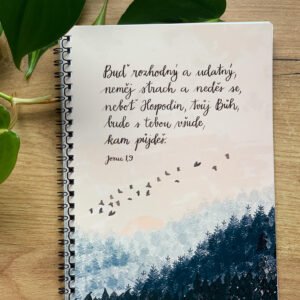 Buď rozhodný a udatný,
neměj strach a neděs se,
neboť Hospodin, tvůj Bůh,
bude s tebou všude,
kam půjdeš.
Jozue 1,9